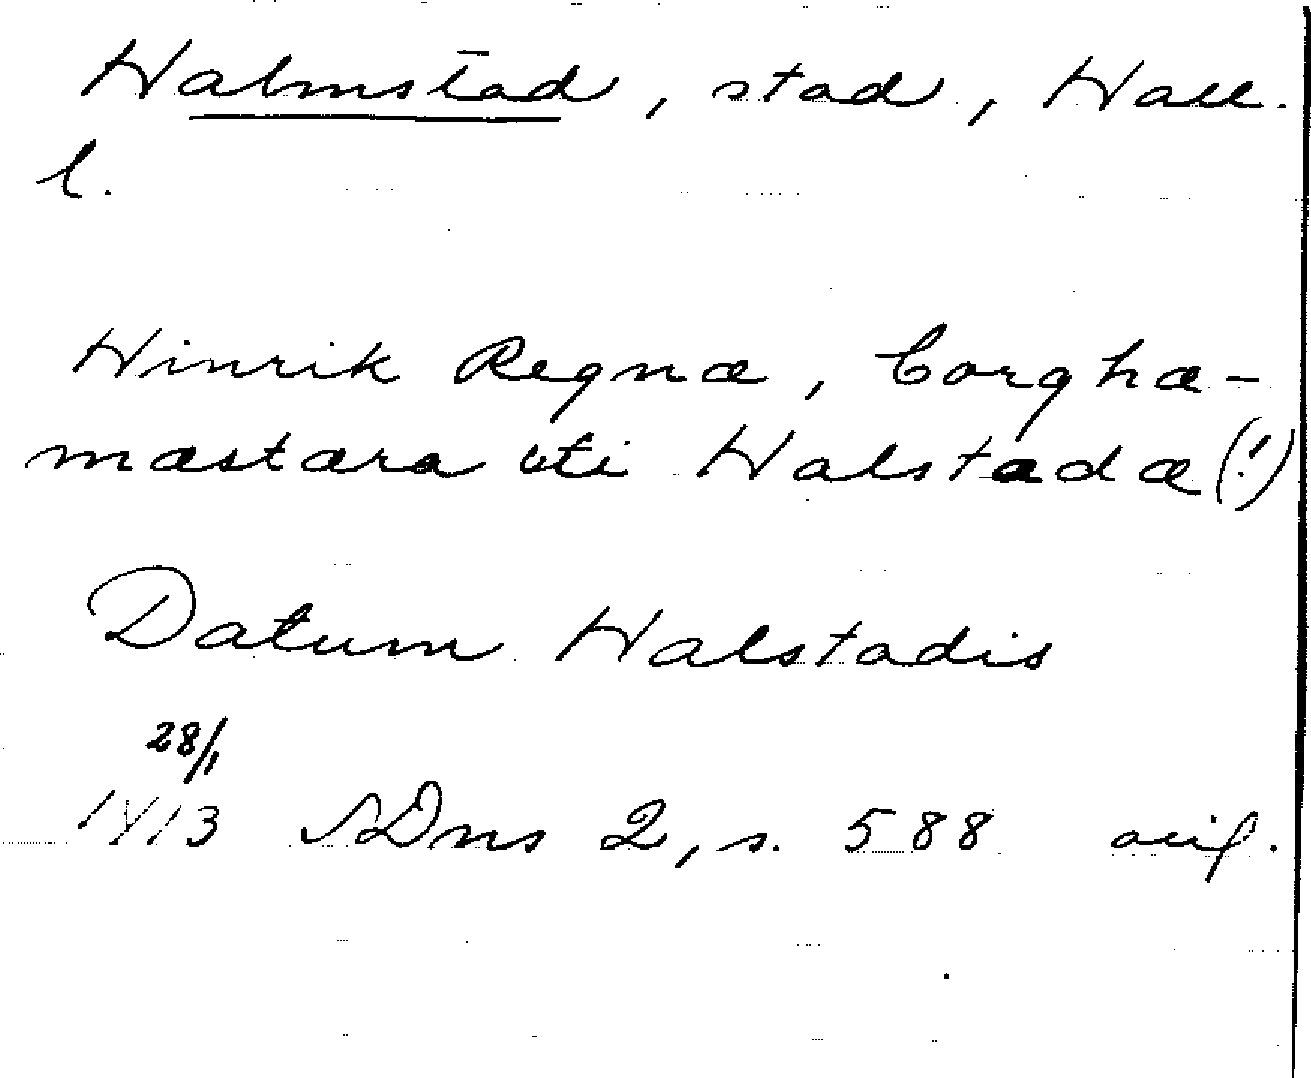 Halmstad, stad, Hall.
l.
Hinrik Regnæ, borghæ-
mæstæra vti Halstadæ (!)
Datum Halstadis
28/1
1413 SDns 2, s. 588 orig.